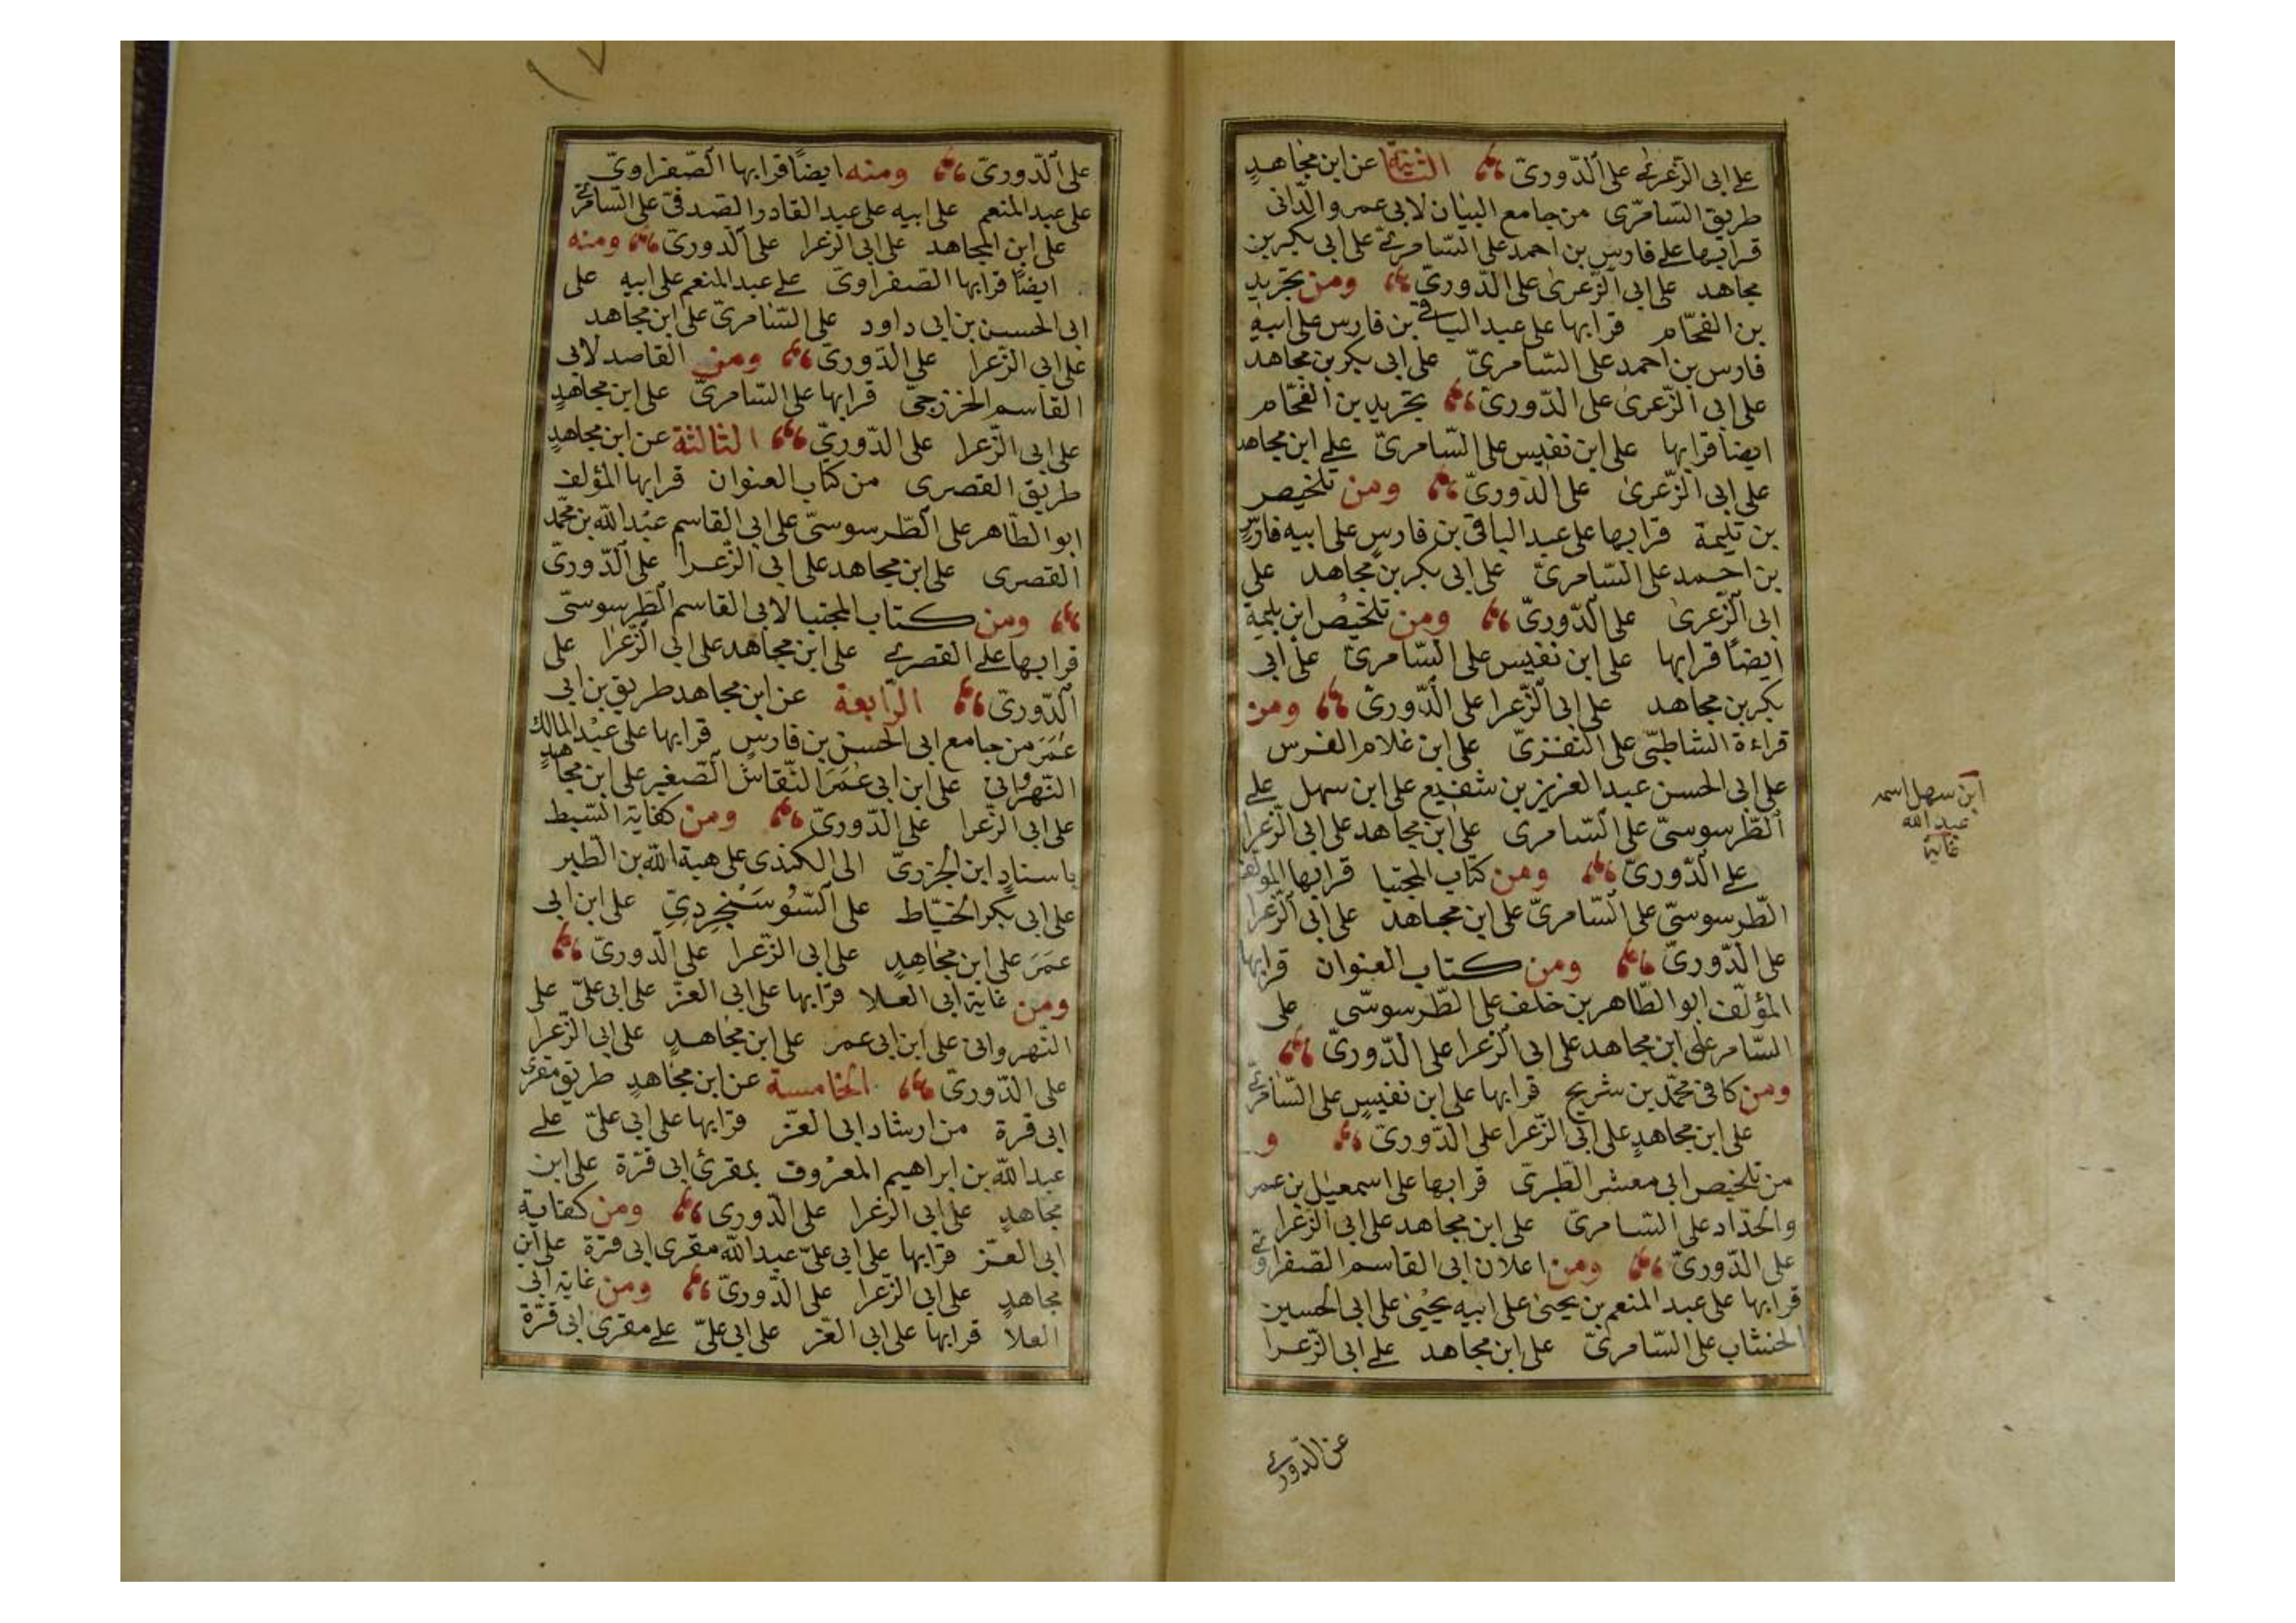 على ابى الزعرى على الدورىّ الثانية عن ابن مجاهدٍ
طريق السّامرّى من جامع البيان لابى عمرو الدّانى
قرا بها على فارس بن احمد على السّامرىّ على ابى بكر بن
مجاهد على ابى الزّعرىٰ على الدّورىّ ومن تجريد
بن الفحّام قرا بها على عبد الباقى بن فارس على ابيه
فارس بن احمد على السّامرىّ على ابى بكر بن مجاهد
على ابى الزّعرىٰ على الدّورىّ تجريد بن الفحّام
ايضا قرا بها على ابن نفيس على السّامرىّ على ابن مجاهد
على ابى الزّعرىٰ على الدّورىّ ومن تلخيص
بن بليمة قرا بها على عبد الباقى بن فارسٍ على ابيه فارسٍ
بن احمد على السّامرىّ على ابى بكر بن مجاهد على
ابى الزّعرىٰ على الدّورىّ ومن تلخيص ابن بليمة
ايضًا قرا بها على ابن نفيس على السّامرىّ على ابى
بكر بن مجاهد على ابى الزّعرا على الدّورىّ ومن
قراءة الشاطبّى على النفزىّ على ابن غلام الفرس
على ابى الحسن عبد العزيز بن شفيع على ابن سهل على
الطّرسوسىّ على السّامرى على ابن مجاهد على ابى الزّعرا
على الدّورىّ ومن كتاب المجتبا قرا بها المؤلف
الطّرسوسىّ على السّامرىّ على ابن مجاهد على ابى الزّعرا
على الدّورىّ ومن كتاب العنوان قرا بها
المؤلّف ابو الطّاهر بن خلف على الطّرسوسّى على
السّامر على ابن مجاهد على ابى الزّعرا على الدّورىّ
ومن كافى محمّد بن شريح قرا بها على ابن نفيسٍ على السّامرّى
على ابن مجاهدٍ على ابى الزّعرا على الدّورىّ و
من تلخيص ابى معشر الطّبرىّ قرا بها على اسمعيل بن عمر
والحدّاد على السّامرىّ على ابن مجاهد على ابى الزّعرا
على الدّورىّ ومن اعلان ابى القاسم الصّفراوىّ
قرا بها على عبد المنعم بن يحيىٰ على ابيه يحيىٰ على ابى الحسين
الخشاب على السّامرىّ على ابن مجاهد على ابى الزّعرا
عن الدّورى
ابن سهل اسمه
عبد الله
غاية
على الدّورىّ ومنه ايضًا قرا بها الصّفراوىّ
على عبد المنعم على ابيه على عبد القادر الصّدفى على السّامرّى
على ابن المجاهد على ابى الزعرا على الدّورىّ ومنه
ايضًا قرا بها الصّفراوىّ على عبد المنعم على ابيه على
ابى الحسين بن ابى داود على السّامرىّ على ابن مجاهد
على ابى الزّعرا على الدّورىّ ومن القاصد لابى
القاسم الخزرجىّ قرا بها على السّامرىّ على ابن مجاهدٍ
على ابى الزّعرا على الدّورىّ الثالثة عن ابن مجاهدٍ
طريق القصرى من كتاب العنوان قرا بها المؤلف
ابو الطّاهر على الطّرسوسىّ على ابى القاسم عبْد الله بن محمّد
القصرى على ابن مجاهد على ابى الزّعرا على الدّورىّ
ومن كتاب المجتبا لابى القاسم الطّرسوسىّ
قرا بها على القصرى على ابن مجاهد على ابى الزّعرا على
الدّورىّ الرّابعة عن ابن مجاهد طريق بن ابى
عُمَرَ من جامع ابى الحسن بن فارسٍ قرا بها على عبْد المالك
النّهروانى على ابن ابى عُمَرَ النّقاش الصّغير على ابن مجاهدٍ
على ابى الزّعرا على الدّورىّ ومن كفاية السّبط
باسنادِ ابن الجزرىّ الى الكندى على هبة الله بن الطّبر
على ابى بكر الخيّاط على السُّوسَنْجِردِىّ على ابن ابى
عمَرَ على ابن مجاهِدٍ على ابى الزّعرا على الدّورىّ
ومن غاية ابى العلا قرا بها على ابى العزّ على ابى علىّ على
النّهروانى على ابن ابى عمر على ابن مجاهدٍ على ابى الزّعرا
على الدّورىّ الخامسة عن ابن مجاهدٍ طريق مقرى
ابى قرة من ارشاد ابى العزّ قرا بها على ابى علىّ على
عبد الله بن ابراهيم المعرُوف بمقرئ ابى قرّة على ابن
مجاهدٍ على ابى الزعرا على الدّورى ومن كفاية
ابى العزّ قرا بها على ابى علىّ عبد الله مقرى ابى قرّة على ابن
مجاهدٍ على ابى الزّعرا على الدّورىّ ومن غاية ابى
العلا قرا بها على ابى العّز على ابى علىّ على مقرى ابى قرّة